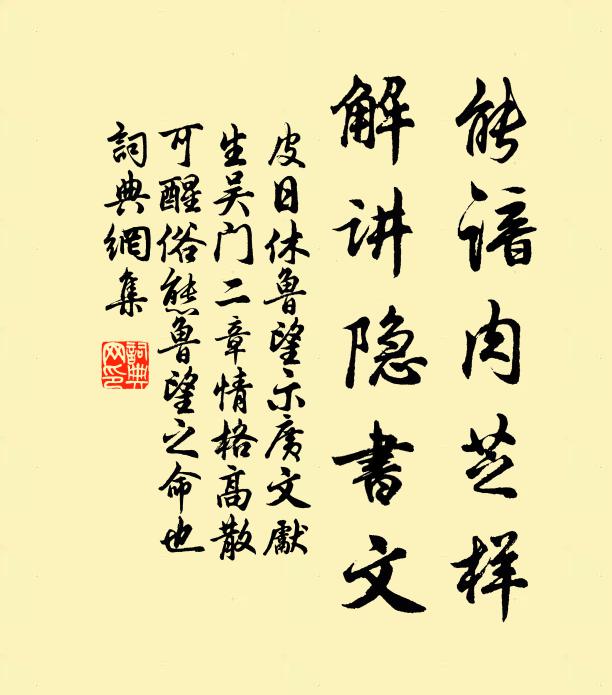 能谙肉芝样
解讲隐书文
皮日休魯望示廣文獻
生吴门二章情格高散
可醒俗態魯望之命也
詞典網集
詞典网印